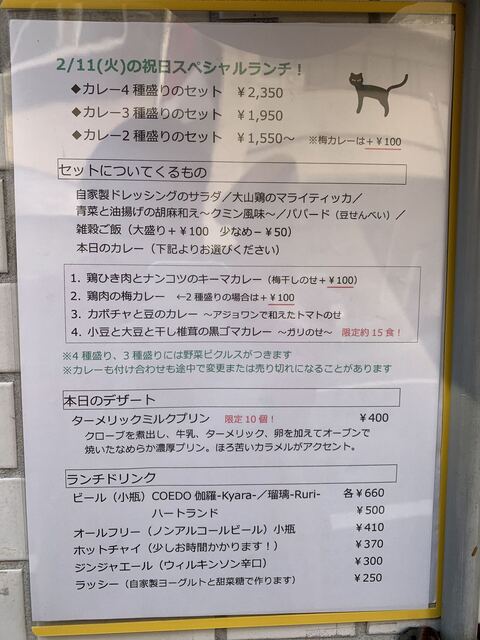 2/11(火)の祝日スペシャルランチ！
◆カレー4種盛りのセット ￥2,350
◆カレー3種盛りのセット ￥1,950
◆カレー2種盛りのセット ￥1,550～ ※梅カレーは＋￥100
セットについてくるもの
自家製ドレッシングのサラダ／大山鶏のマライティッカ／
青菜と油揚げの胡麻和え～クミン風味～／パパード（豆せんべい）／
雑穀ご飯（大盛り＋￥100 少なめ－￥50）
本日のカレー（下記よりお選びください）
1. 鶏ひき肉とナンコツのキーマカレー（梅干しのせ＋￥100）
2. 鶏肉の梅カレー ←2種盛りの場合は＋￥100
3. カボチャと豆のカレー ～アジョワンで和えたトマトのせ
4. 小豆と大豆と干し椎茸の黒ゴマカレー ～ガリのせ～ 限定約15食！
※4種盛り、3種盛りには野菜ピクルスがつきます
※カレーも付け合わせも途中で変更または売り切れになることがあります
本日のデザート
ターメリックミルクプリン 限定10個！ ￥400
クローブを煮出し、牛乳、ターメリック、卵を加えてオーブンで
焼いたなめらか濃厚プリン。ほろ苦いカラメルがアクセント。
ランチドリンク
ビール（小瓶）COEDO 伽羅-Kyara-／瑠璃-Ruri- 各￥660
ハートランド ￥500
オールフリー（ノンアルコールビール）小瓶 ￥410
ホットチャイ（少しお時間かかります！） ￥370
ジンジャエール（ウィルキンソン辛口） ￥300
ラッシー（自家製ヨーグルトと甜菜糖で作ります） ￥250